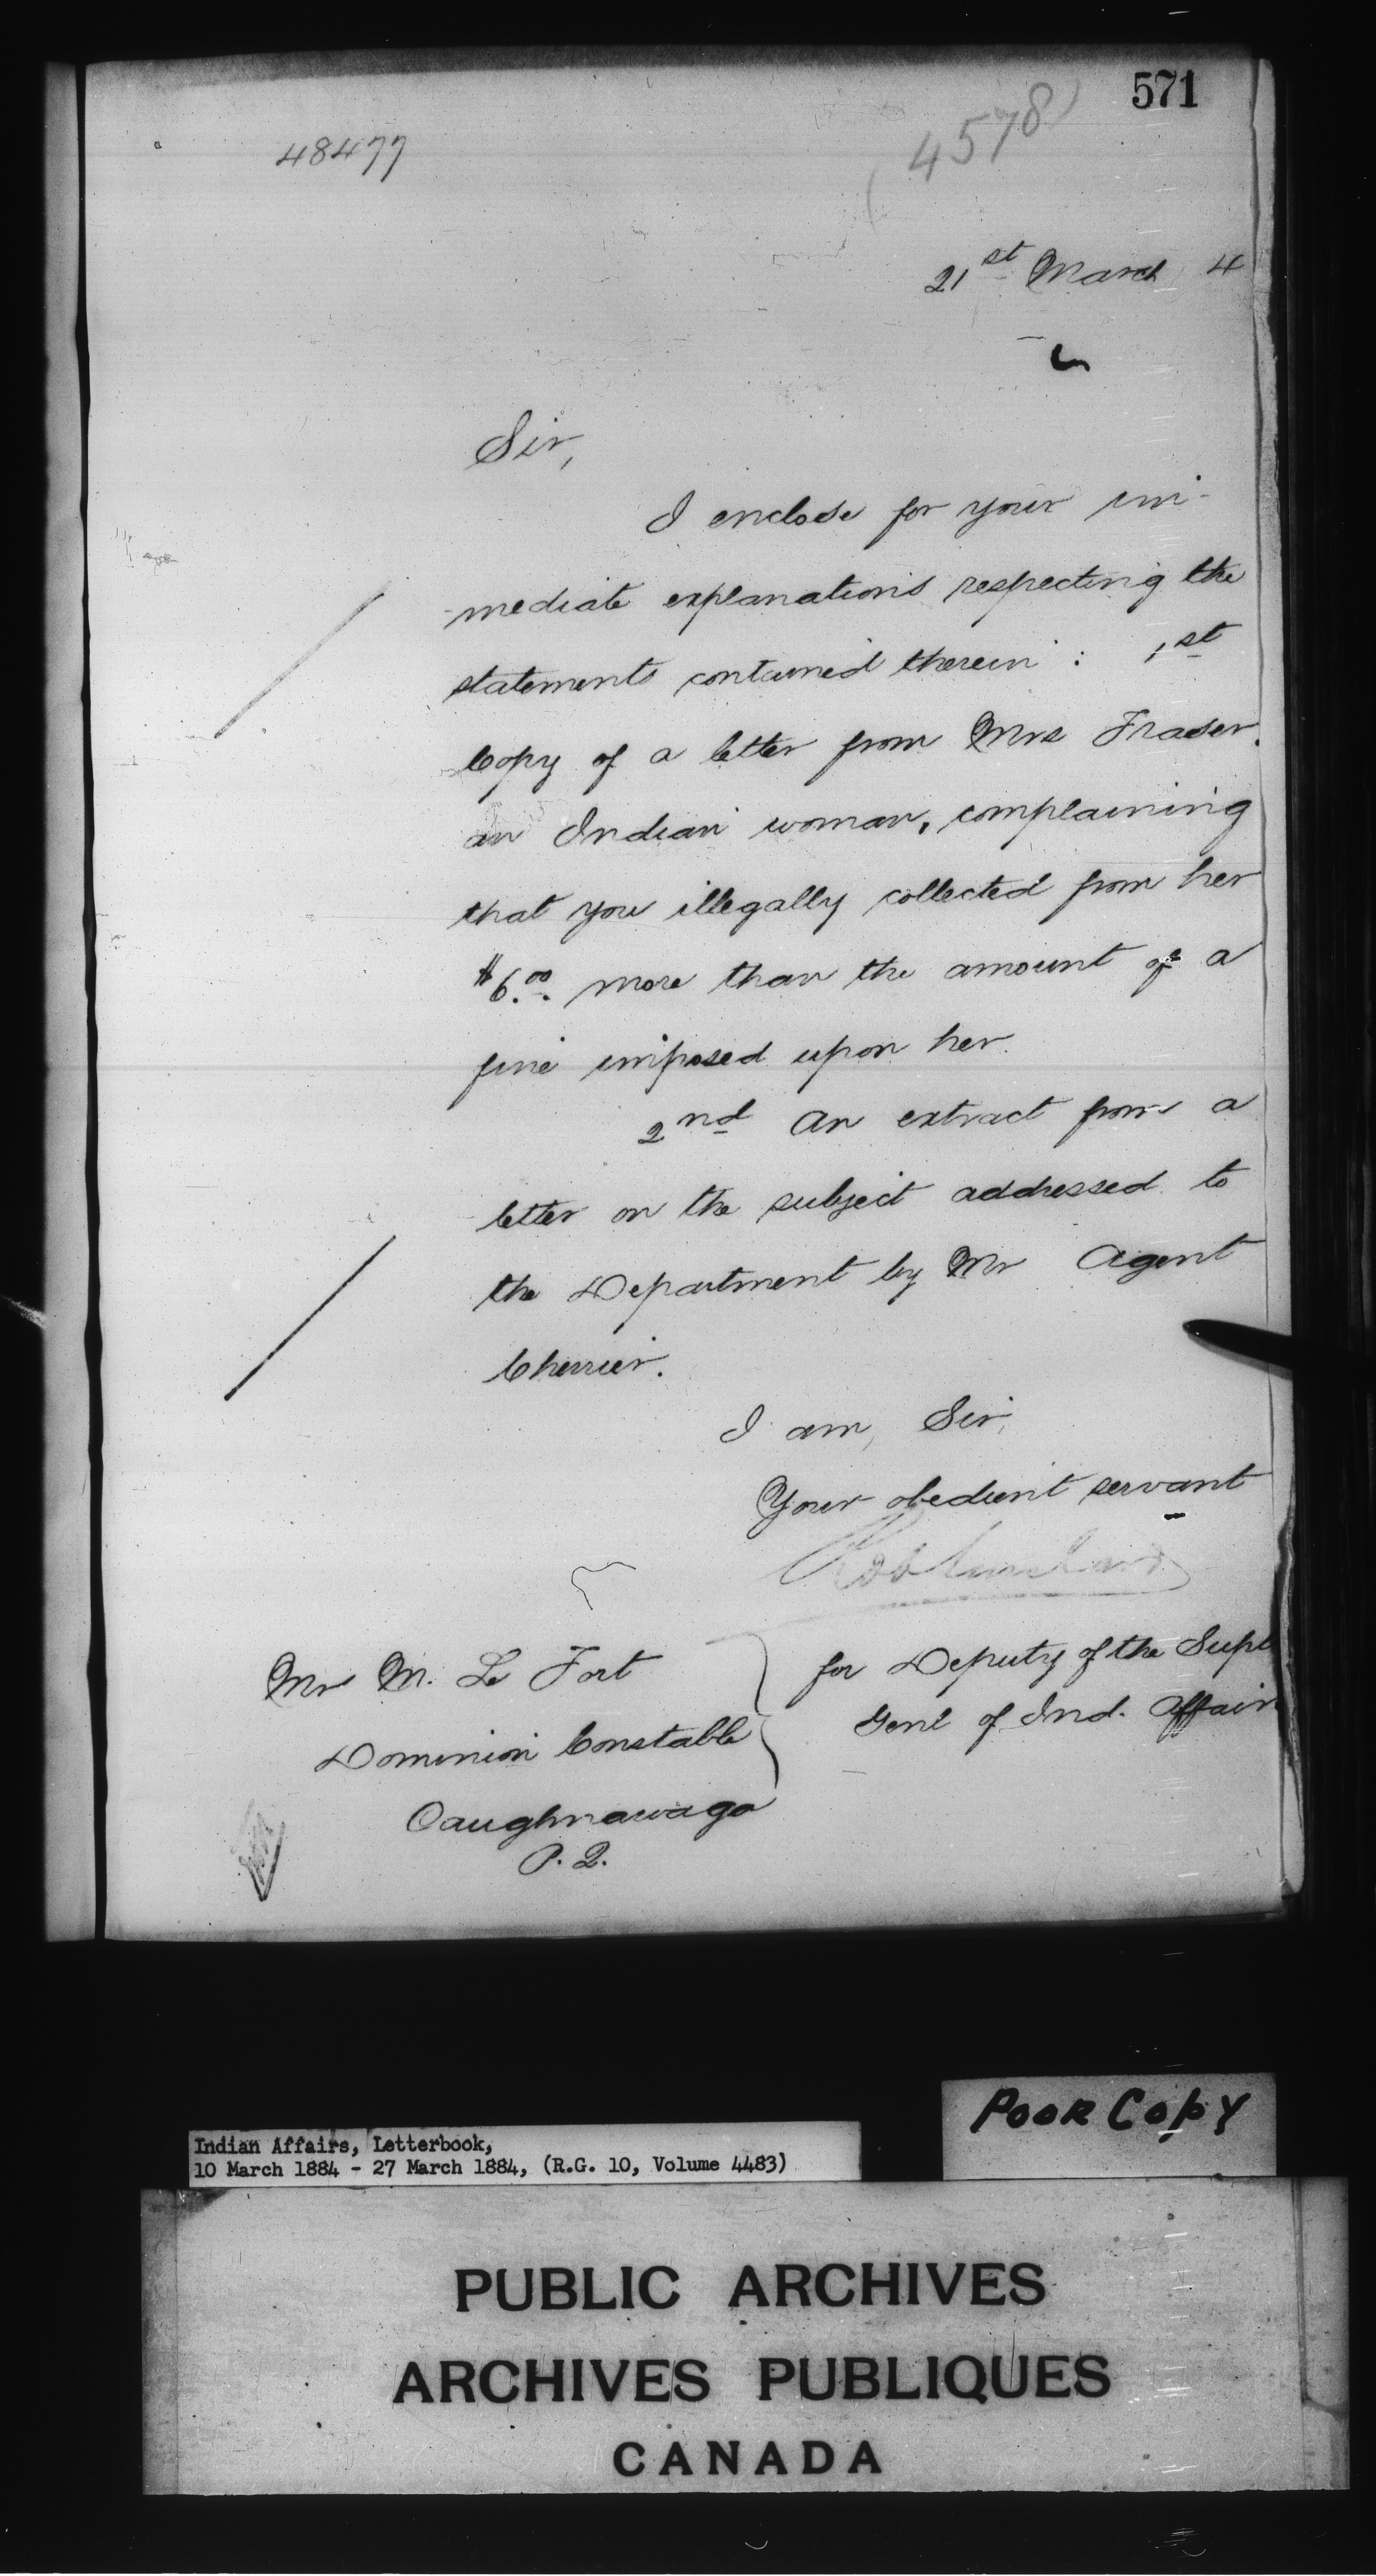 571
48477
(4578)
21st March 4
Sir,
I enclose for your im-
mediate explanations respecting the
statements contained therein : 1st
Copy of a letter from Mrs Fraser,
an Indian woman, complaining
that you illegally collected from her
$6.00 more than the amount of a
fine imposed upon her.
2nd An extract from a
letter on the subject addressed to
the Department by Mr Agent
Cherrier.
I am, Sir,
Your obedient servant
Mr M. Le Fort
for Deputy of the Supt
Genl of Ind. Affairs
Dominion Constable
Caughnawaga
P. Q.
Poor Copy
Indian Affairs, Letterbook,
10 March 1884 - 27 March 1884, (R.G. 10, Volume 4483)
PUBLIC ARCHIVES
ARCHIVES PUBLIQUES
CANADA